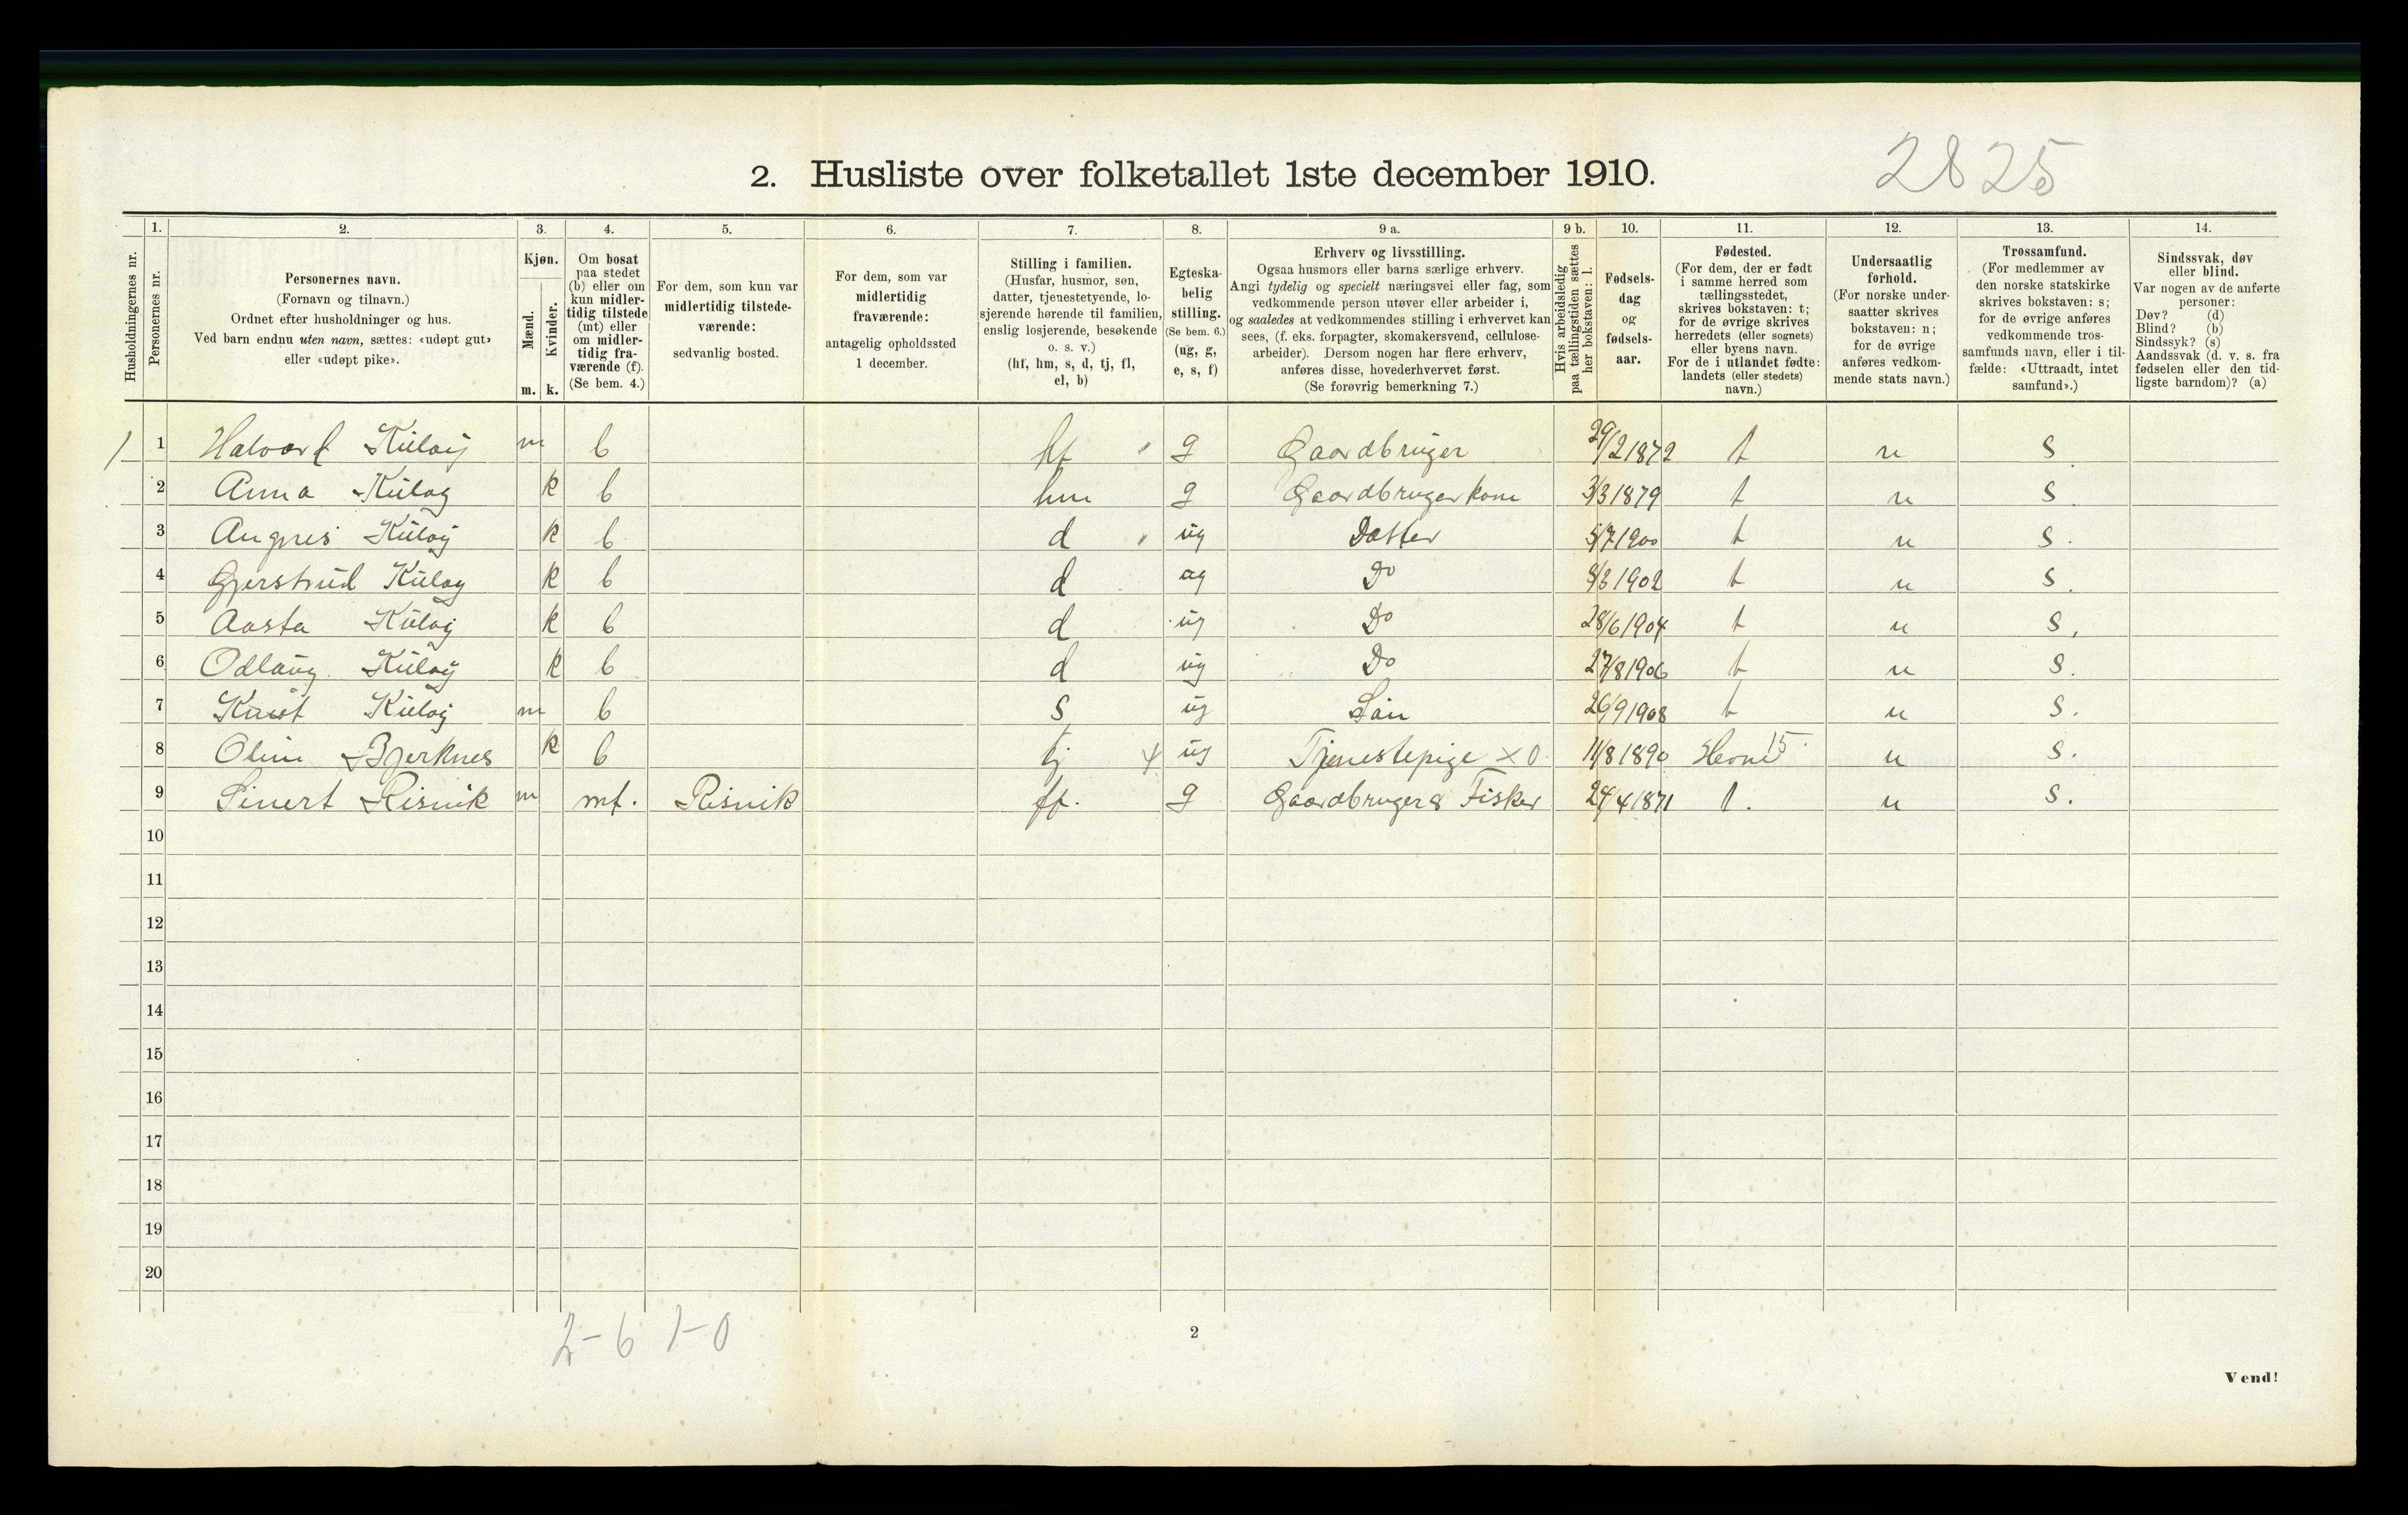 2. Husliste over folketallet 1ste december 1910.
2825
Husholdningernes nr.
1. Personernes nr.
2. Personernes navn.
(Fornavn og tilnavn.)
Ordnet efter husholdninger og hus.
Ved barn endnu uten navn, sættes: «udøpt gut»
eller «udøpt pike».
3. Kjøn.
Mænd. m.
Kvinder. k.
4. Om bosat
paa stedet
(b) eller om
kun midler-
tidig tilstede
(mt) eller
om midler-
tidig fra-
værende (f).
(Se bem. 4.)
5. For dem, som kun var
midlertidig tilstede-
værende:
sedvanlig bosted.
6. For dem, som var
midlertidig
fraværende:
antagelig opholdssted
1 december.
7. Stilling i familien.
(Husfar, husmor, søn,
datter, tjenestetyende, lo-
sjerende hørende til familien,
enslig losjerende, besøkende
o. s. v.)
(hf, hm, s, d, tj, fl,
el, b)
8. Egteska-
belig
stilling.
(Se bem. 6.)
(ug, g,
e, s, f)
9 a. Erhverv og livsstilling.
Ogsaa husmors eller barns særlige erhverv.
Angi tydelig og specielt næringsvei eller fag, som
vedkommende person utøver eller arbeider i,
og saaledes at vedkommendes stilling i erhvervet kan
sees, (f. eks. forpagter, skomakersvend, cellulose-
arbeider). Dersom nogen har flere erhverv,
anføres disse, hovederhvervet først.
(Se forøvrig bemerkning 7.)
9 b. Hvis arbeidsledig
paa tællingstiden sættes
her bokstaven: l.
10. Fødsels-
dag
og
fødsels-
aar.
11. Fødested.
(For dem, der er født
i samme herred som
tællingsstedet,
skrives bokstaven: t;
for de øvrige skrives
herredets (eller sognets)
eller byens navn.
For de i utlandet fødte:
landets (eller stedets)
navn.)
12. Undersaatlig
forhold.
(For norske under-
saatter skrives
bokstaven: n;
for de øvrige
anføres vedkom-
mende stats navn.)
13. Trossamfund.
(For medlemmer av
den norske statskirke
skrives bokstaven: s;
for de øvrige anføres
vedkommende tros-
samfunds navn, eller i til-
fælde: «Uttraadt, intet
samfund».)
14. Sindssvak, døv
eller blind.
Var nogen av de anførte
personer:
Døv? (d)
Blind? (b)
Sindssyk? (s)
Aandssvak (d. v. s. fra
fødselen eller den tid-
ligste barndom)? (a)
1 1 Halvard Küløy m b hf g Gaardbruger 29/2 1872 t n s
2 Anna Küløy k b hm g Gaardbrugerkone 3/3 1879 t n s.
3 Angnes Küløy k b d ug Datter 5/7 1900 t n s.
4 Gjerstrud Küløy k b d ug Do 8/3 1902 t n s.
5 Aasta Küløy k b d ug Do 28/6 1904 t n s.
6 Odlaug Küløy k b d ug Do 27/8 1906 t n s.
7 Knut Küløy m b s ug Søn 26/9 1908 t n s.
8 Oline Bjerknes k b tj ug Tjenestepige x 0 11/8 1890 Hevne 15 n s.
9 Sinert Risnik m mt. Risnik g Gaardbruger & Fisker 24/4 1871 t. n s.
10
11
12
13
14
15
16
17
18
19
20
2-6 1-0
2
Vend!